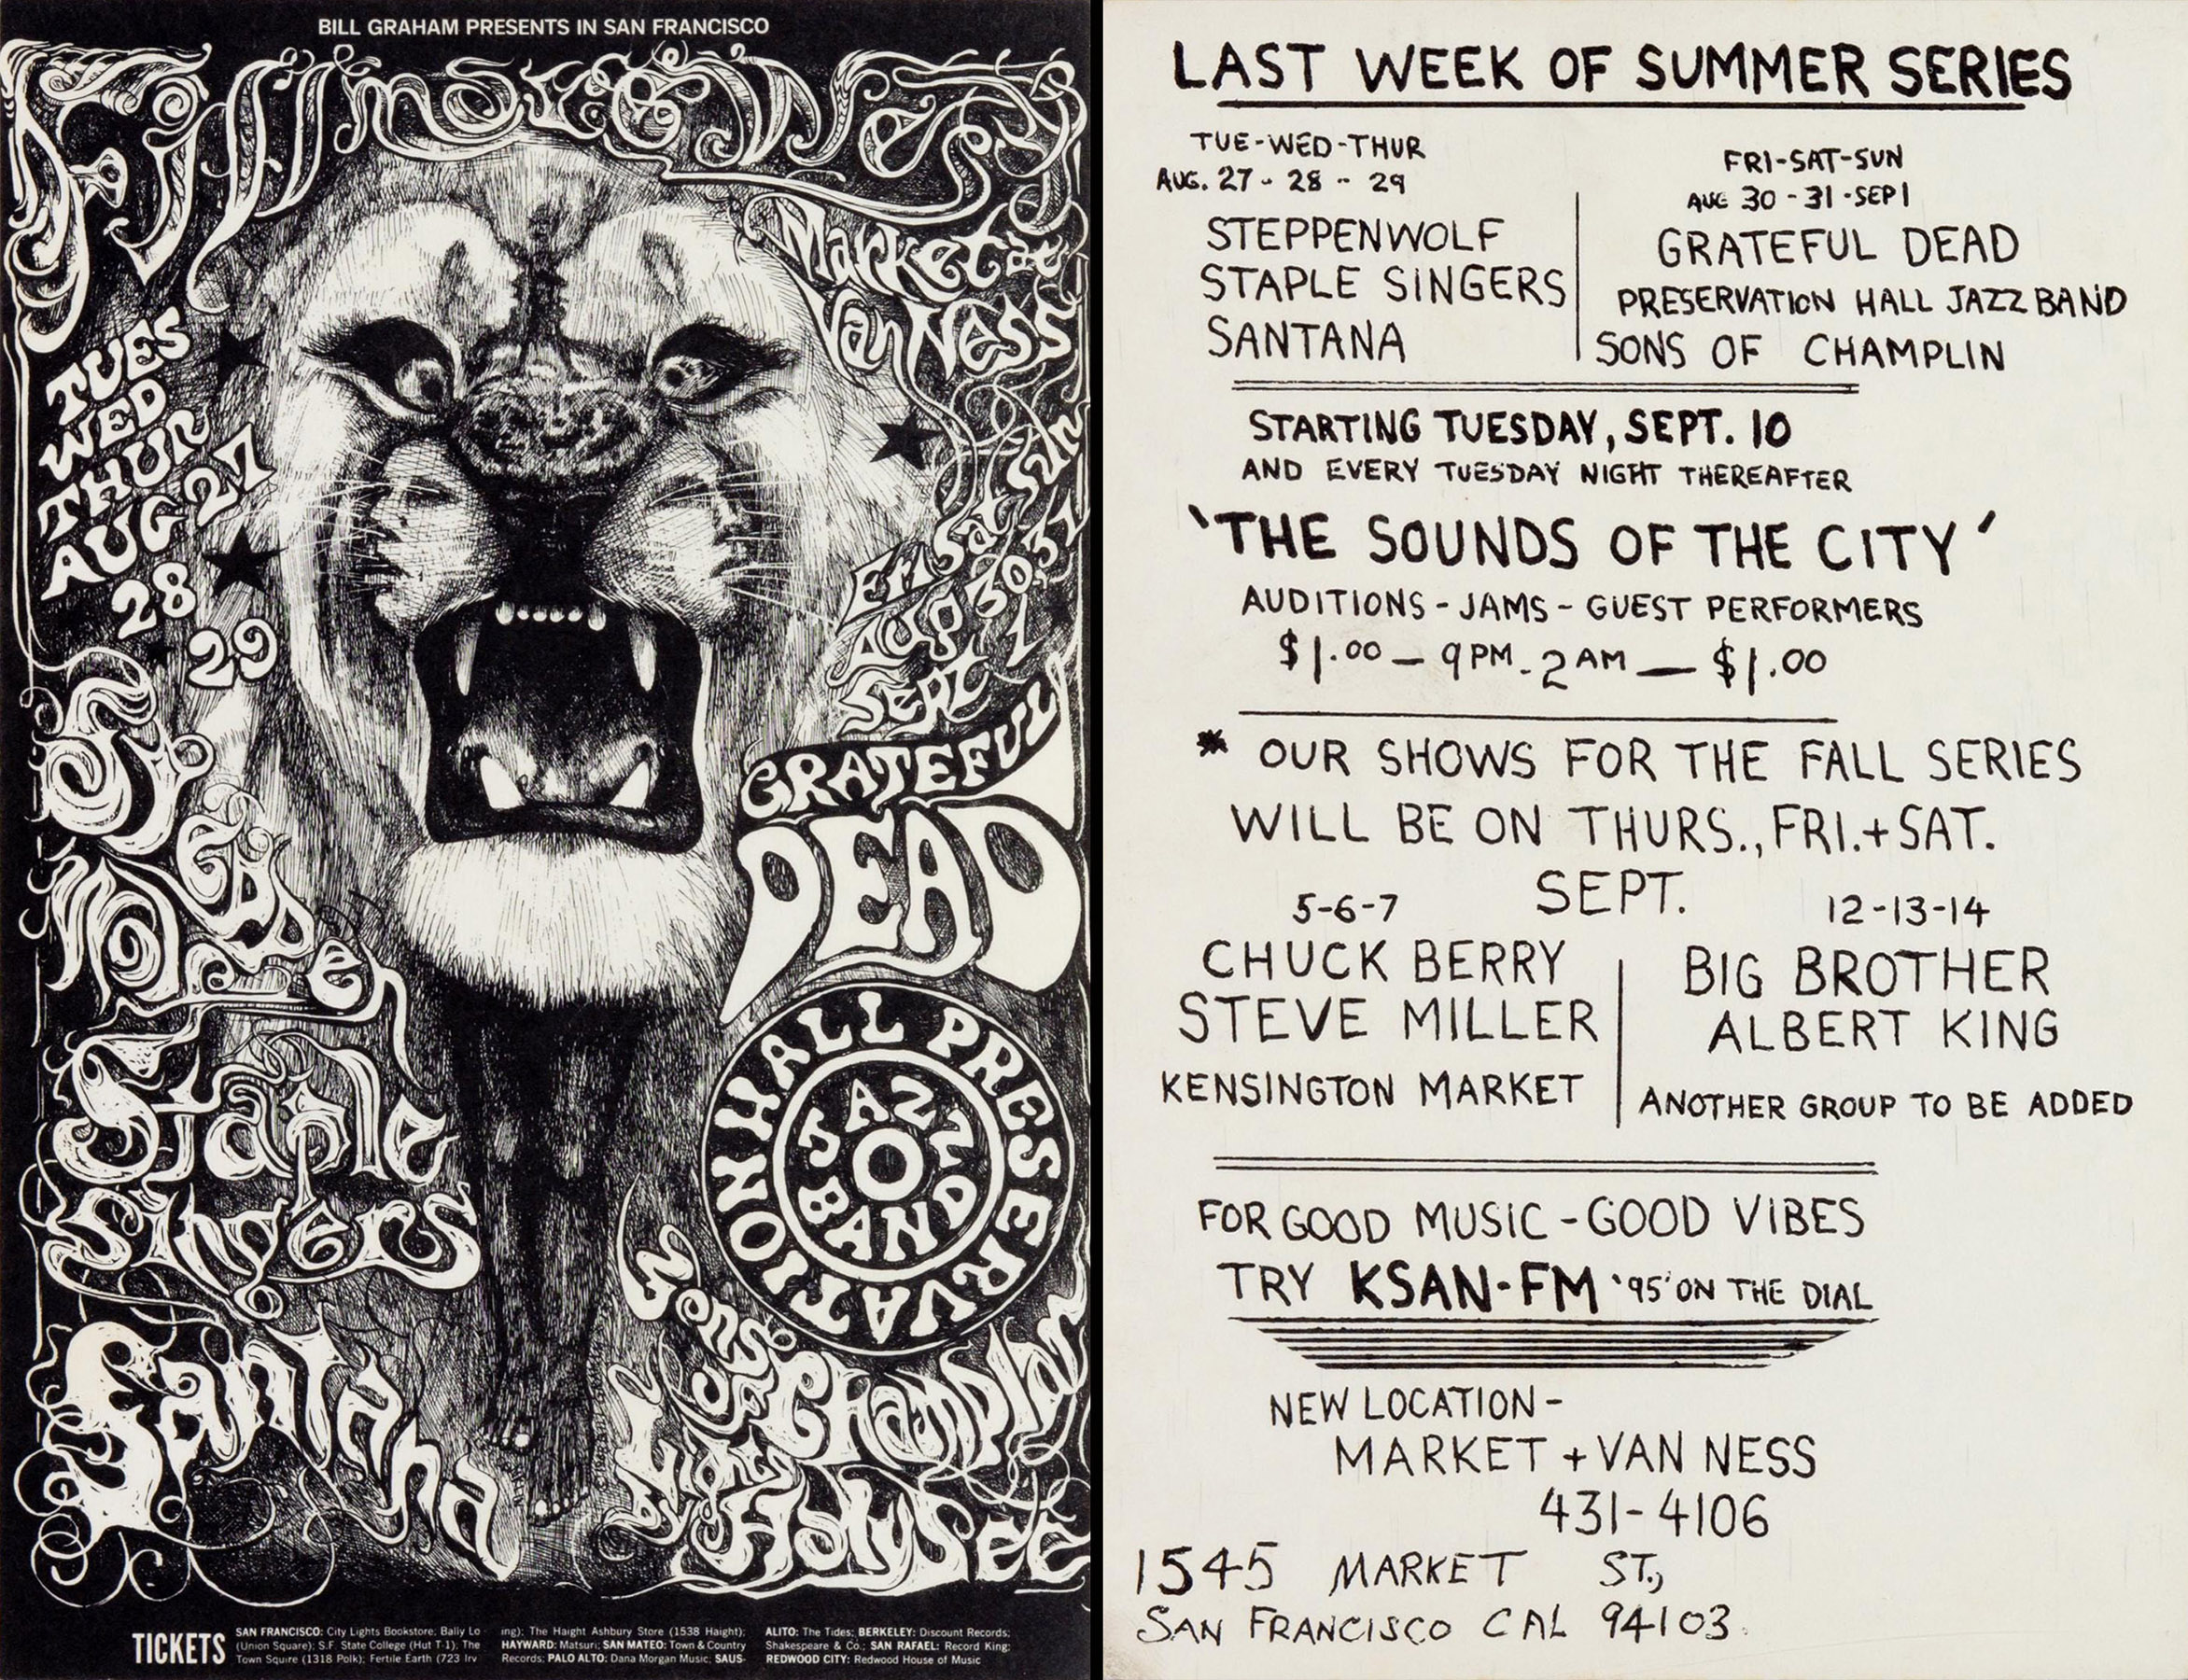 BILL GRAHAM PRESENTS IN SAN FRANCISCO
Fillmore West
Market at
Van Ness
TUES
WED
THUR
AUG 27
28
29
Fri Sat Sun
Aug 30, 31
Sept 1
Steppen
Wolf
Staple
Singers
Santana
GRATEFUL
DEAD
PRESERVATION HALL
JAZZ BAND
Sons
of Champlin
Lights
by Holy See
TICKETS
SAN FRANCISCO: City Lights Bookstore; Bally Lo
(Union Square); S.F. State College (Hut T-1); The
Town Squire (1318 Polk); Fertile Earth (723 Irv
ing); The Haight Ashbury Store (1538 Haight);
HAYWARD: Matsuri; SAN MATEO: Town & Country
Records; PALO ALTO: Dana Morgan Music; SAUS-
ALITO: The Tides; BERKELEY: Discount Records;
Shakespeare & Co.; SAN RAFAEL: Record King;
REDWOOD CITY: Redwood House of Music
LAST WEEK OF SUMMER SERIES
TUE-WED-THUR
AUG. 27 - 28 - 29
STEPPENWOLF
STAPLE SINGERS
SANTANA
FRI-SAT-SUN
AUG 30 - 31 - SEP 1
GRATEFUL DEAD
PRESERVATION HALL JAZZ BAND
SONS OF CHAMPLIN
STARTING TUESDAY, SEPT. 10
AND EVERY TUESDAY NIGHT THEREAFTER
'THE SOUNDS OF THE CITY'
AUDITIONS - JAMS - GUEST PERFORMERS
$1.00 — 9PM - 2AM — $1.00
* OUR SHOWS FOR THE FALL SERIES
WILL BE ON THURS., FRI. + SAT.
SEPT.
5-6-7
CHUCK BERRY
STEVE MILLER
KENSINGTON MARKET
12-13-14
BIG BROTHER
ALBERT KING
ANOTHER GROUP TO BE ADDED
FOR GOOD MUSIC - GOOD VIBES
TRY KSAN-FM '95' ON THE DIAL
NEW LOCATION -
MARKET + VAN NESS
431-4106
1545 MARKET ST.,
SAN FRANCISCO CAL 94103.